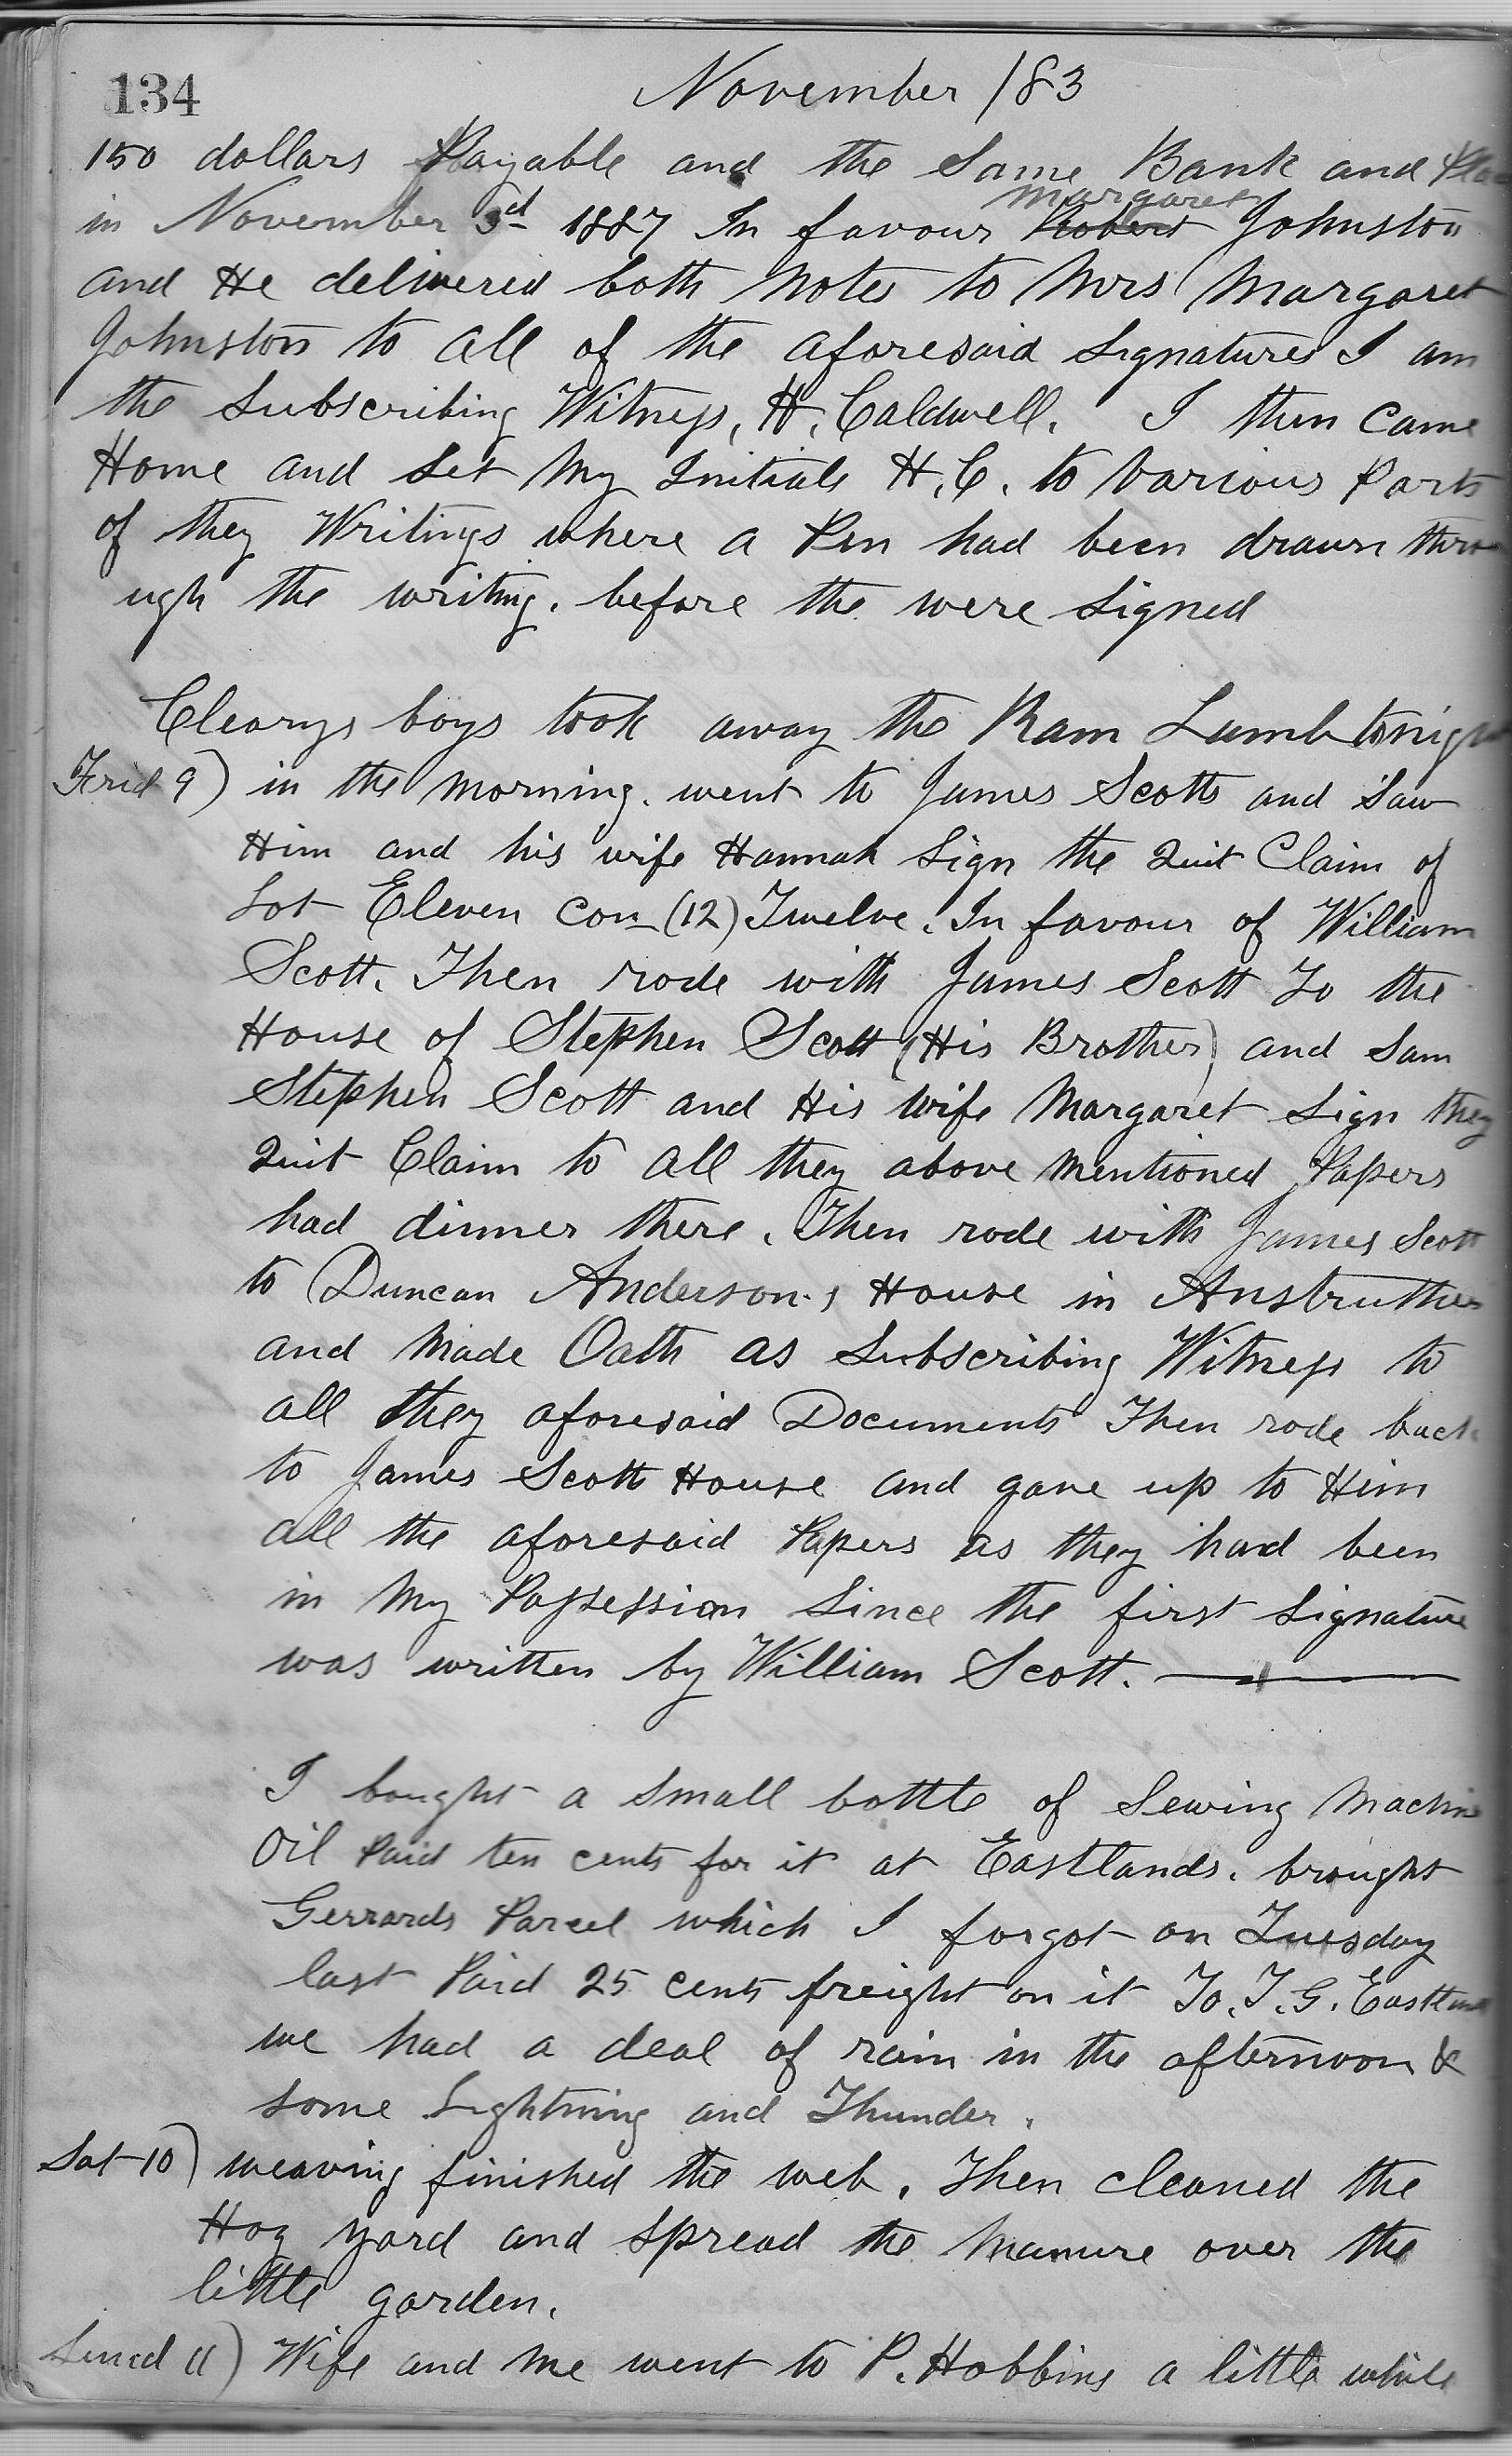 134
November /83
150 dollars Payable and the Same Bank and
in November 3d 1887 In favour Robert Margaret Johnston
and He delivered both Notes to Mrs Margaret
Johnston to all of the aforesaid Signatures I am
the Subscribing Witness, H. Caldwell. I then came
Home and Set My Initials H. C. to Various Parts
of they Writings where a Pen had been drawn thro
ugh the writing. before the were Signed
Clearys boys took away the Ram Lamb
Frid 9) in the Morning. went to James Scotts and Saw
Him and his wife Hannah Sign the Quit Claim of
Lot Eleven Con (12) Twelve. In favour of William
Scott. Then rode with James Scott To the
House of Stephen Scott (His Brother) and Sam
Stephen Scott and His Wife Margaret Sign they
Quit Claim to all they above Mentioned Papers
had dinner there. Then rode with James Scott
to Duncan Anderson's House in Anstruther
and Made Oath as Subscribing Witness to
all they aforesaid Documents Then rode back
to James Scott House and gave up to Him
all the aforesaid Papers as they had been
in My Possession Since the first Signature
was written by William Scott.
I bought a Small bottle of Sewing Machine
Oil Paid ten cents for it at Eastlands. brought
Gerrards Parcel which I forgot on Tuesday
last Paid 25 cents freight on it To. T. G. Eastland
we had a deal of rain in the afternoon &
some Lightning and Thunder.
Sat 10) weaving finished the web. Then cleaned the
Hog yard and spread the Manure over the
little garden.
Sund 11) Wife and Me went to P. Hobbins a little while